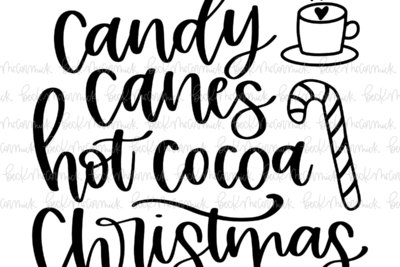 candy
canes
hot cocoa
Christmas